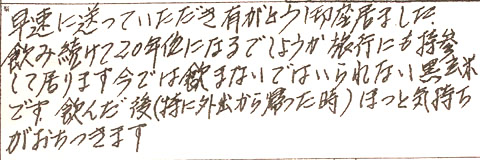 早速に送っていただき有がとう御座居ました
飲み続けて20年位になるでしょうか旅行にも持参
して居ります今では飲まないではいられない黒玄米
です 飲んだ後(特に外出から帰った時)ほっと気持ち
がおちつきます